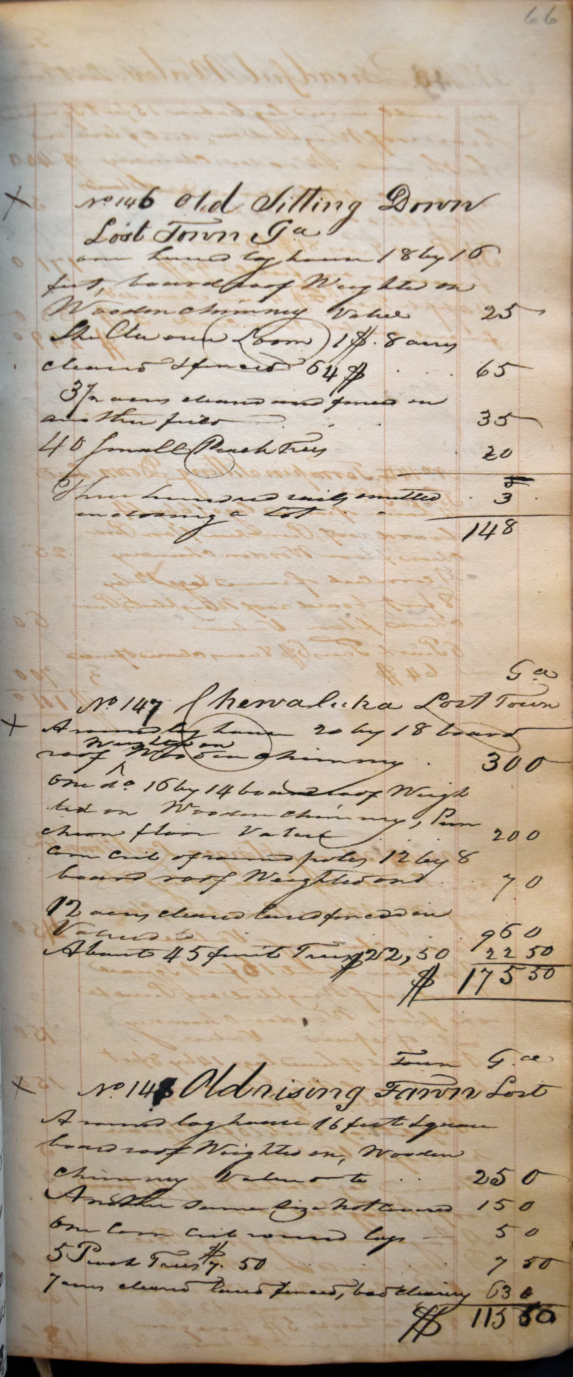 66
No 146 Old Sitting Down
Lost Town Ga
one round log house 18 by 16
feet, board roof Weighted on
Wooden chimney Value 25
One Loom 1$. 8 acres
cleared & fenced 64 $ 65
3 1/2 acres cleared and fenced in
another field 35
40 Small Peach Trees 20
Three hundred rails omitted 3
enclosing a Lot
148
Ga
No 147 Chewaluka Lost Town
A round log house 20 by 18 board
Weighted on
roof Wooden chimney 300
One do 16 by 14 board roof Weigh
ted on Wooden chimney, Pun
cheon floor Value 200
Corn crib of round poles 12 by 8
board roof Weighted on 70
12 acres cleared land fenced in
Valued 960
About 45 fruit Trees $22,50 22 50
$ 175 50
Town Ga
No 148 Old rising Fawn Lost
A round log house 16 feet Square
board roof Weighted on, Wooden
chimney Value 250
Another same size not 150
One Corn crib round logs 50
5 Peach Trees $7.50 7 50
7 acres cleared land fenced, bad clearing 630
$ 115 50